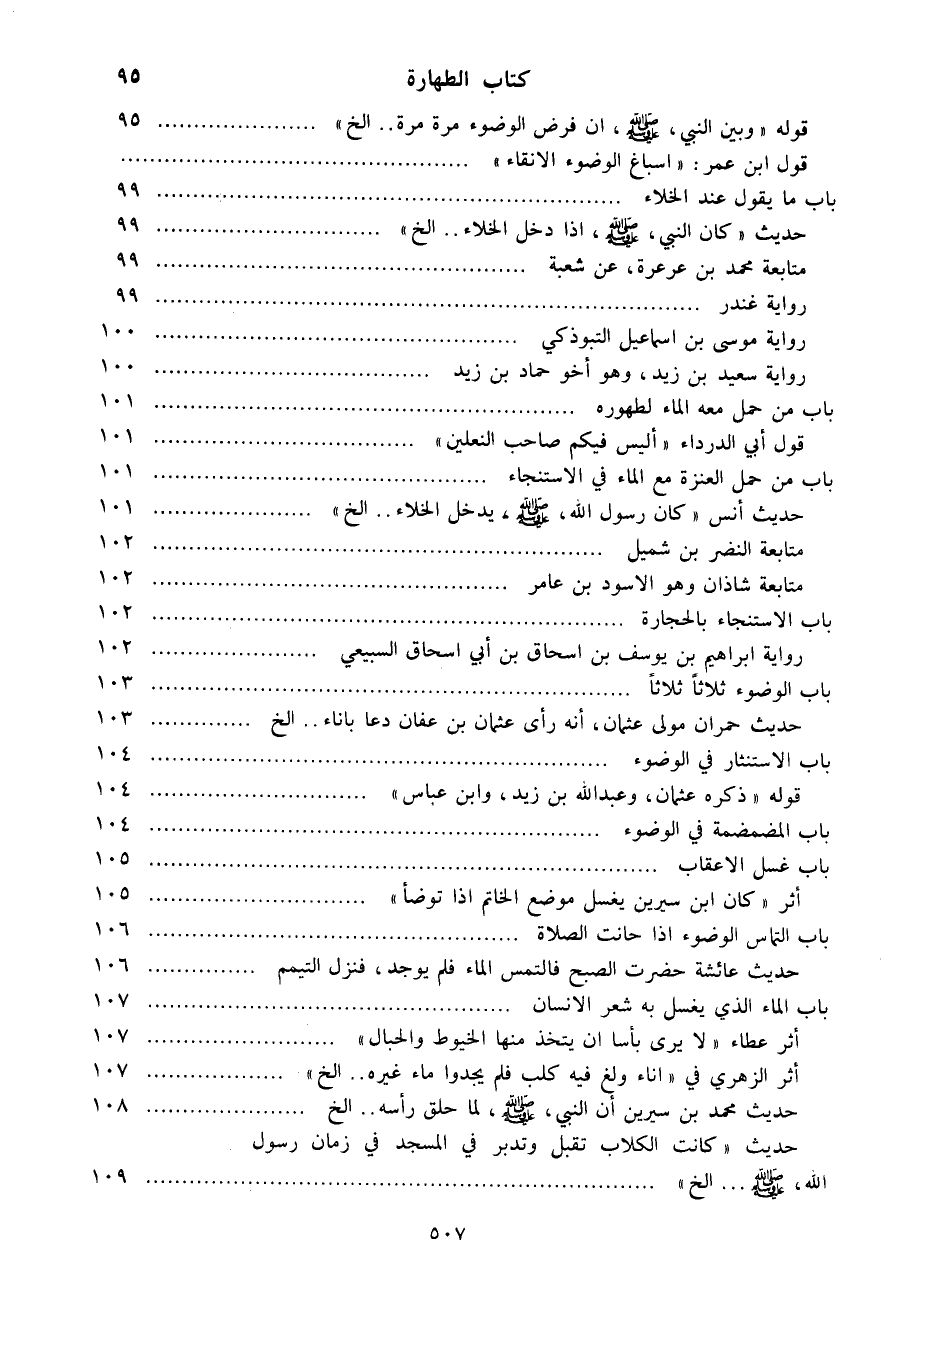 كتاب الطهارة ٩٥
قوله « وبين النبي، ﷺ ، ان فرض الوضوء مرة مرة.. الخ» ...................... ٩٥
قول ابن عمر : « اسباغ الوضوء الانقاء » ................................................
باب ما يقول عند الخلاء ................................................................ ٩٩
حديث « كان النبي، ﷺ ، اذا دخل الخلاء.. الخ» ............................... ٩٩
متابعة محمد بن عرعرة، عن شعبة .................................................... ٩٩
رواية غندر ............................................................................ ٩٩
رواية موسى بن اسماعيل التبوذكي .................................................. ١٠٠
رواية سعيد بن زيد، وهو أخو حماد بن زيد ....................................... ١٠٠
باب من حمل معه الماء لطهوره .......................................................... ١٠١
قول أبي الدرداء « أليس فيكم صاحب النعلين» .................................... ١٠١
باب من حمل العنزة مع الماء في الاستنجاء .............................................. ١٠١
حديث أنس « كان رسول الله، ﷺ ، يدخل الخلاء.. الخ» ...................... ١٠١
متابعة النضر بن شميل ............................................................... ١٠٢
متابعة شاذان وهو الاسود بن عامر ................................................. ١٠٢
باب الاستنجاء بالحجارة ................................................................. ١٠٢
رواية ابراهيم بن يوسف بن اسحاق بن أبي اسحاق السبيعي ....................... ١٠٢
باب الوضوء ثلاثاً ثلاثاً .................................................................. ١٠٣
حديث حمران مولى عثمان، أنه رأى عثمان بن عفان دعا باناء.. الخ .............. ١٠٣
باب الاستنثار في الوضوء ............................................................... ١٠٤
قوله « ذكره عثمان، وعبدالله بن زيد، وابن عباس» .............................. ١٠٤
باب المضمضة في الوضوء .............................................................. ١٠٤
باب غسل الاعقاب ...................................................................... ١٠٥
أثر « كان ابن سيرين يغسل موضع الخاتم اذا توضأ» .............................. ١٠٥
باب التماس الوضوء اذا حانت الصلاة ................................................... ١٠٦
حديث عائشة حضرت الصبح فالتمس الماء فلم يوجد، فنزل التيمم ............... ١٠٦
باب الماء الذي يغسل به شعر الانسان .................................................. ١٠٧
أثر عطاء « لا يرى بأسا ان يتخذ منها الخيوط والحبال» .......................... ١٠٧
أثر الزهري في « اناء ولغ فيه كلب فلم يجدوا ماء غيره.. الخ» ................... ١٠٧
حديث محمد بن سيرين أن النبي، ﷺ ، لما حلق رأسه.. الخ ...................... ١٠٨
حديث « كانت الكلاب تقبل وتدبر في المسجد في زمان رسول
الله، ﷺ ... الخ» ...................................................................... ١٠٩
٥٠٧